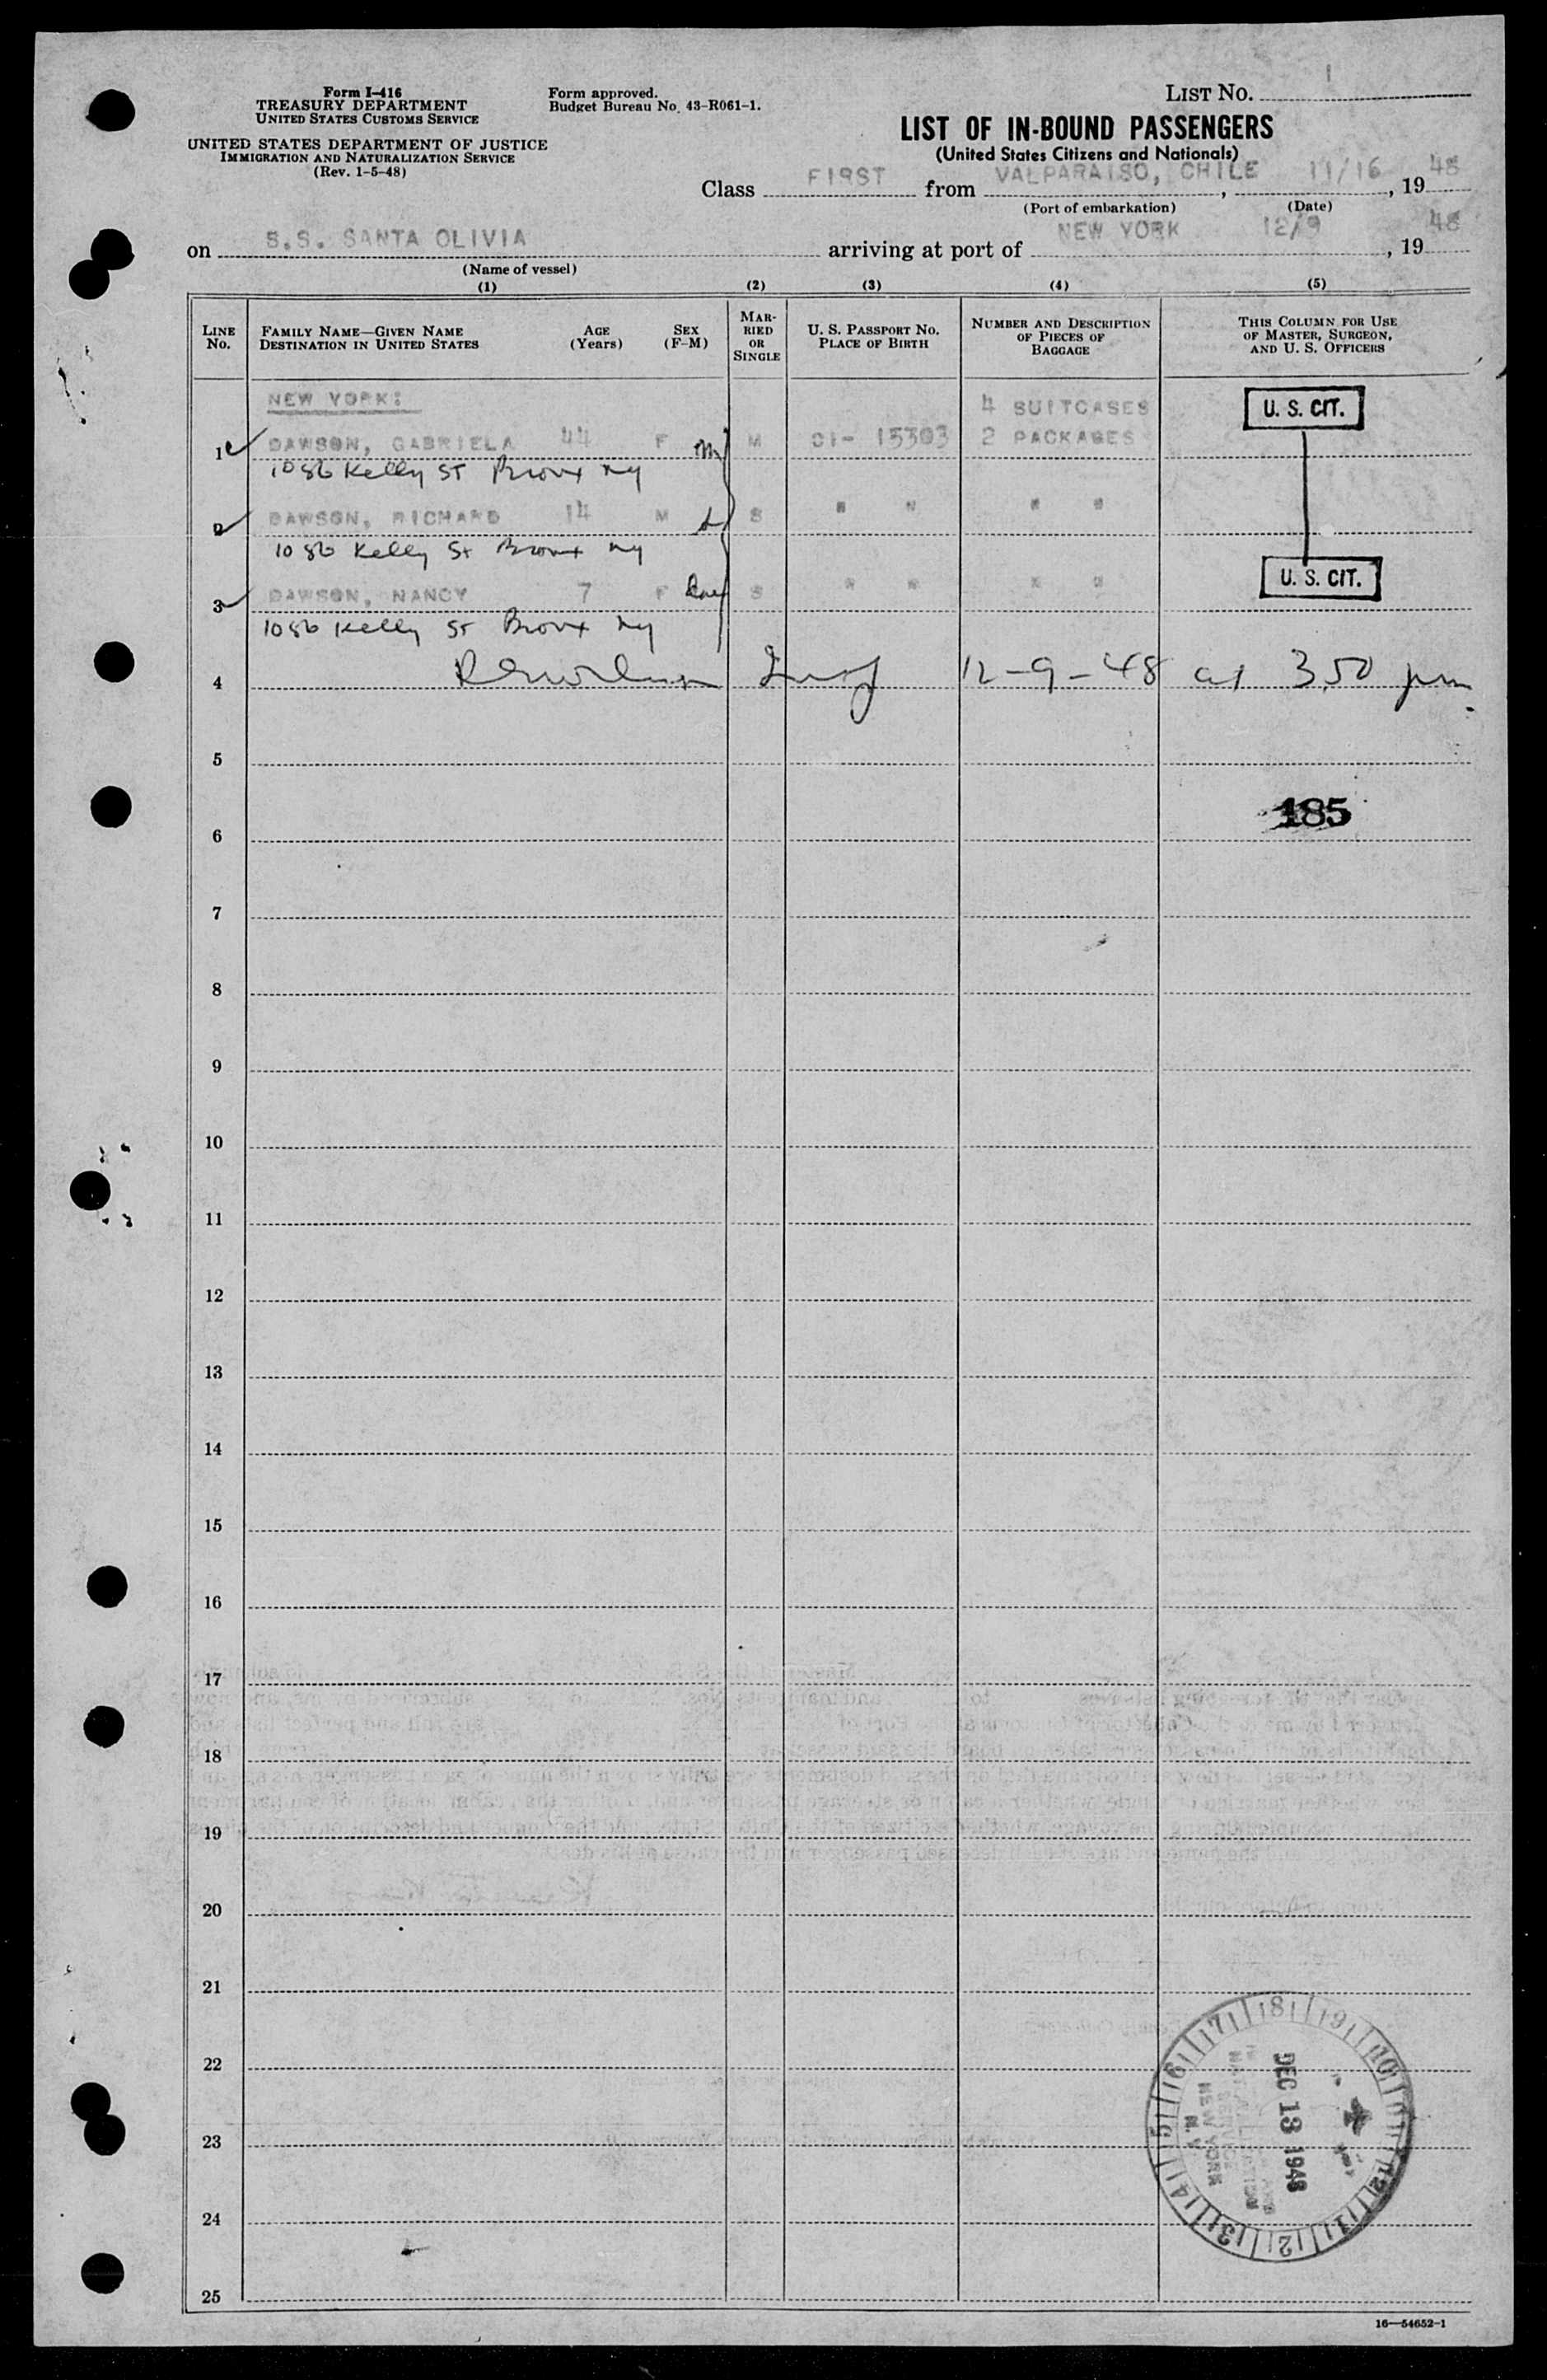 Form I-416
TREASURY DEPARTMENT
UNITED STATES CUSTOMS SERVICE
UNITED STATES DEPARTMENT OF JUSTICE
IMMIGRATION AND NATURALIZATION SERVICE
(Rev. 1-5-48)
Form approved.
Budget Bureau No. 43-R061-1.
LIST NO. 1
LIST OF IN-BOUND PASSENGERS
(United States Citizens and Nationals)
Class FIRST from VALPARAISO, CHILE, 11/16, 19 48
(Port of embarkation) (Date)
on S.S. SANTA OLIVIA arriving at port of NEW YORK 12/9, 19 48
(Name of vessel)
(1) (2) (3) (4) (5)
LINE NO. FAMILY NAME—GIVEN NAME DESTINATION IN UNITED STATES AGE (Years) SEX (F-M) MARRIED OR SINGLE U. S. PASSPORT NO. PLACE OF BIRTH NUMBER AND DESCRIPTION OF PIECES OF BAGGAGE THIS COLUMN FOR USE OF MASTER, SURGEON, AND U. S. OFFICERS
NEW YORK: 4 SUITCASES U. S. CIT.
1 DAWSON, GABRIELA 44 F M 01- 15303 2 PACKAGES
1086 Kelly St Bronx Ny
2 DAWSON, RICHARD 14 M S " " " "
1086 Kelly St Bronx Ny
3 DAWSON, NANCY 7 F S " " " " U. S. CIT.
1086 Kelly St Bronx Ny
4 12-9-48 at 3.50 pm
5
185
6
7
8
9
10
11
12
13
14
15
16
17
18
19
20
21
22
23
24
25
DEC 13 1948
NEW YORK
N. Y.
16—54652-1